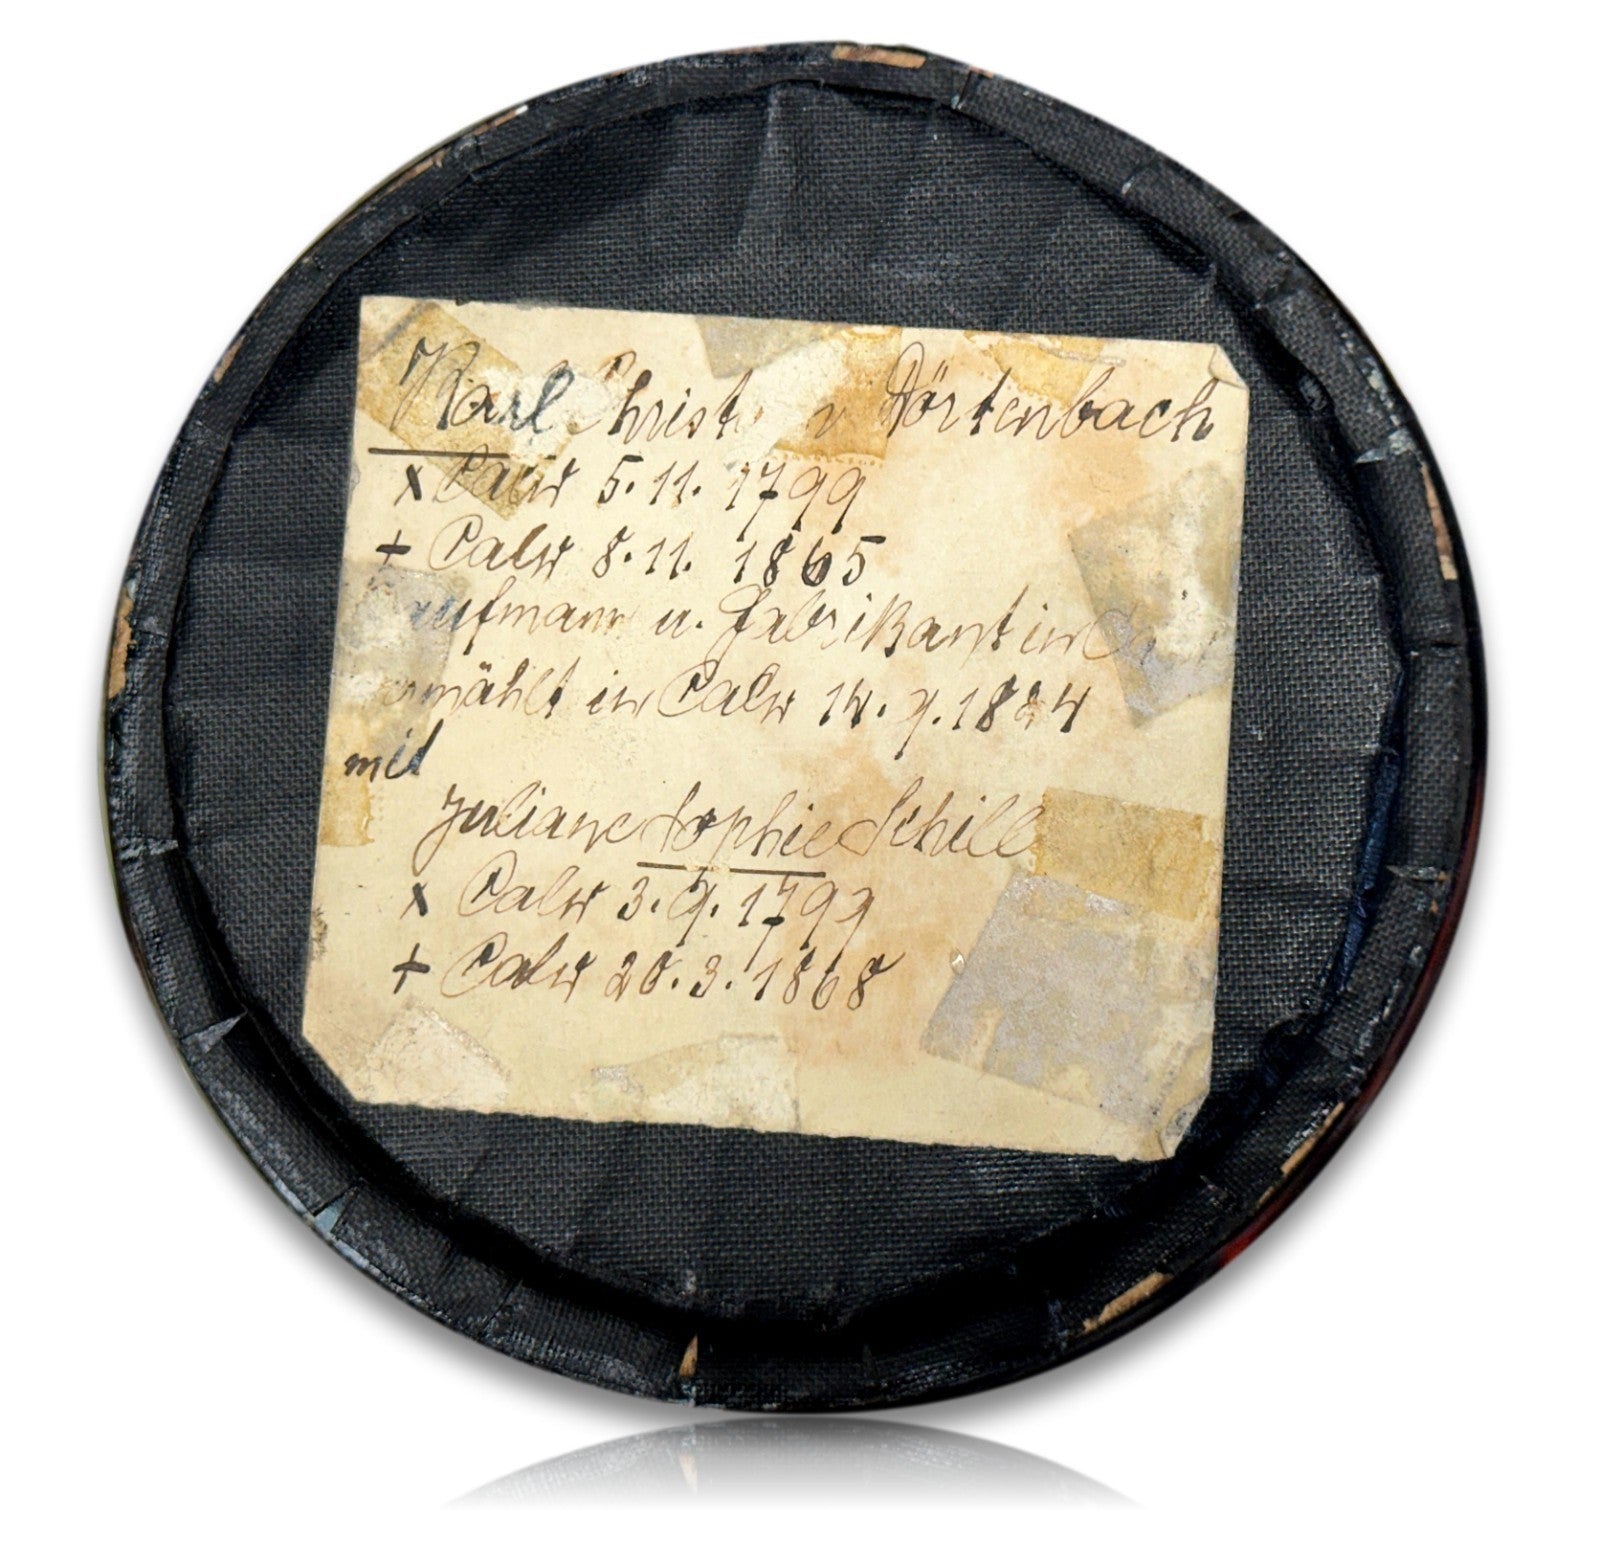 Karl Christ. v Dörtenbach
x Calw 5.11.1799
+ Calw 8.11.1865
Kaufmann u. Fabrikant in Calw
vermählt in Calw 14.9.1824
mit
Juliane Sophie Schill
x Calw 3.9.1799
+ Calw 20.3.1868